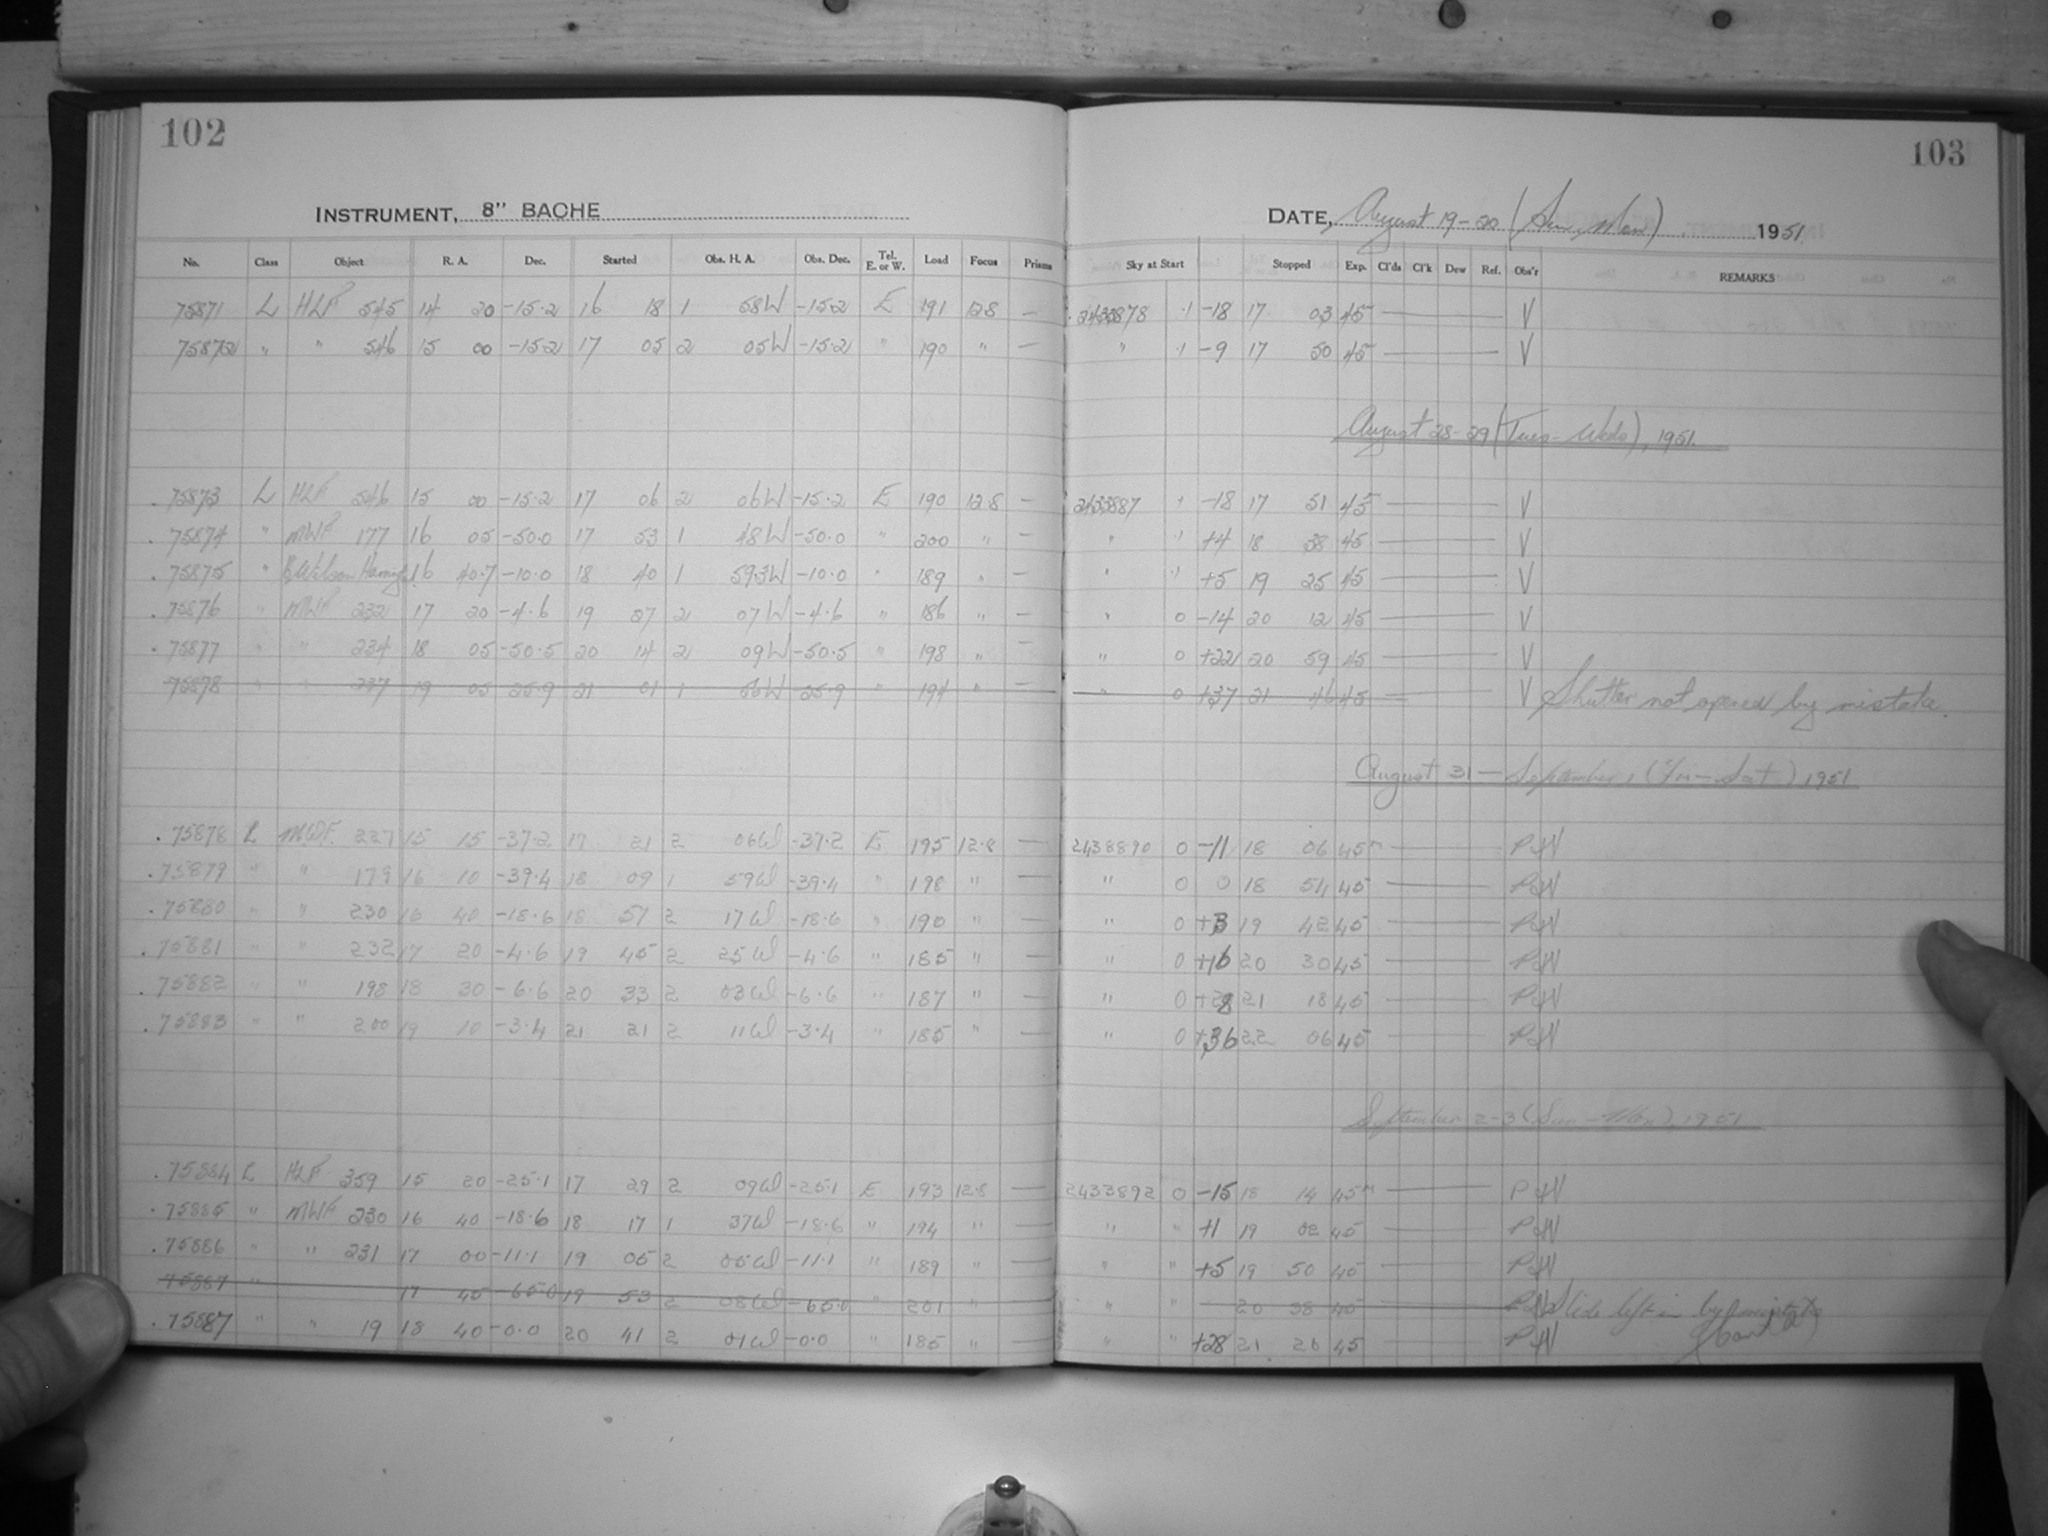 102
103
INSTRUMENT, 8" BACHE
DATE, August 19-20 (Sun-Mon) 1951
No. Class Object R. A. Dec. Started Obs. H. A. Obs. Dec. Tel. E. or W. Load Focus Prisms Sky at Start Stopped Exp. Cl'ds Cl'k Dew Ref. Obs'r REMARKS
75871 L HLF 545 14 20 -15.2 16 18 1 58W -15.2 E 191 12.8 — 2433878 .1 -18 17 03 45 V
75872 " " 546 15 00 -15.2 17 05 2 05W -15.2 " 190 " — " .1 -9 17 50 45 V
August 28-29 (Tues-Weds), 1951.
75873 L HLF 546 15 00 -15.2 17 06 2 06W -15.2 E 190 12.8 — 2433887 -18 17 51 45 V
75874 " MWF 177 16 05 -50.0 17 53 1 48W -50.0 " 200 " — " +4 18 38 45 V
75875 " Wilson Harring. 16 40.7 -10.0 18 40 1 59.3W -10.0 " 189 " — " +5 19 25 45 V
75876 " MWF 232 17 20 -4.6 19 27 2 07W -4.6 " 186 " — " 0 -14 20 12 45 V
75877 " " 234 18 05 -50.5 20 14 2 09W -50.5 " 198 " — " 0 +22 20 59 45 V
75878 " " 237 19 05 25.9 21 01 1 56W 25.9 " 194 " — " 0 +37 21 46 45 V Shutter not opened by mistake.
August 31 — September 1 (Fri-Sat) 1951
75878 L MWF. 227 15 15 -37.2 17 21 2 06W -37.2 E 195 12.8 — 2433890 0 -11 18 06 45m
75879 " " 179 16 10 -39.4 18 09 1 59W -39.4 " 198 " — " 0 0 18 54 45
75880 " " 230 16 40 -18.6 18 57 2 17W -18.6 " 190 " — " 0 +3 19 42 45
75881 " " 232 17 20 -4.6 19 45 2 25W -4.6 " 185 " — " 0 +16 20 30 45
75882 " " 198 18 30 -6.6 20 33 2 03W -6.6 " 187 " — " 0 +28 21 18 45
75883 " " 200 19 10 -3.4 21 21 2 11W -3.4 " 185 " — " 0 +36 22 06 45
September 2-3 (Sun-Mon), 1951
75884 L HLF 359 15 20 -25.1 17 29 2 09W -25.1 E 193 12.8 — 2433892 0 -15 18 14 45m
75885 " MWF 230 16 40 -18.6 18 17 1 37W -18.6 " 194 " — " " +1 19 02 45
75886 " " 231 17 00 -11.1 19 05 2 05W -11.1 " 189 " — " " +5 19 50 45
75887 " 17 45 -65.0 19 53 2 08W -65.0 " 201 " — " " — 20 38 45 Slide left in by mistake
75887 " " 19 18 40 -0.0 20 41 2 01W -0.0 " 185 " — " " +28 21 26 45